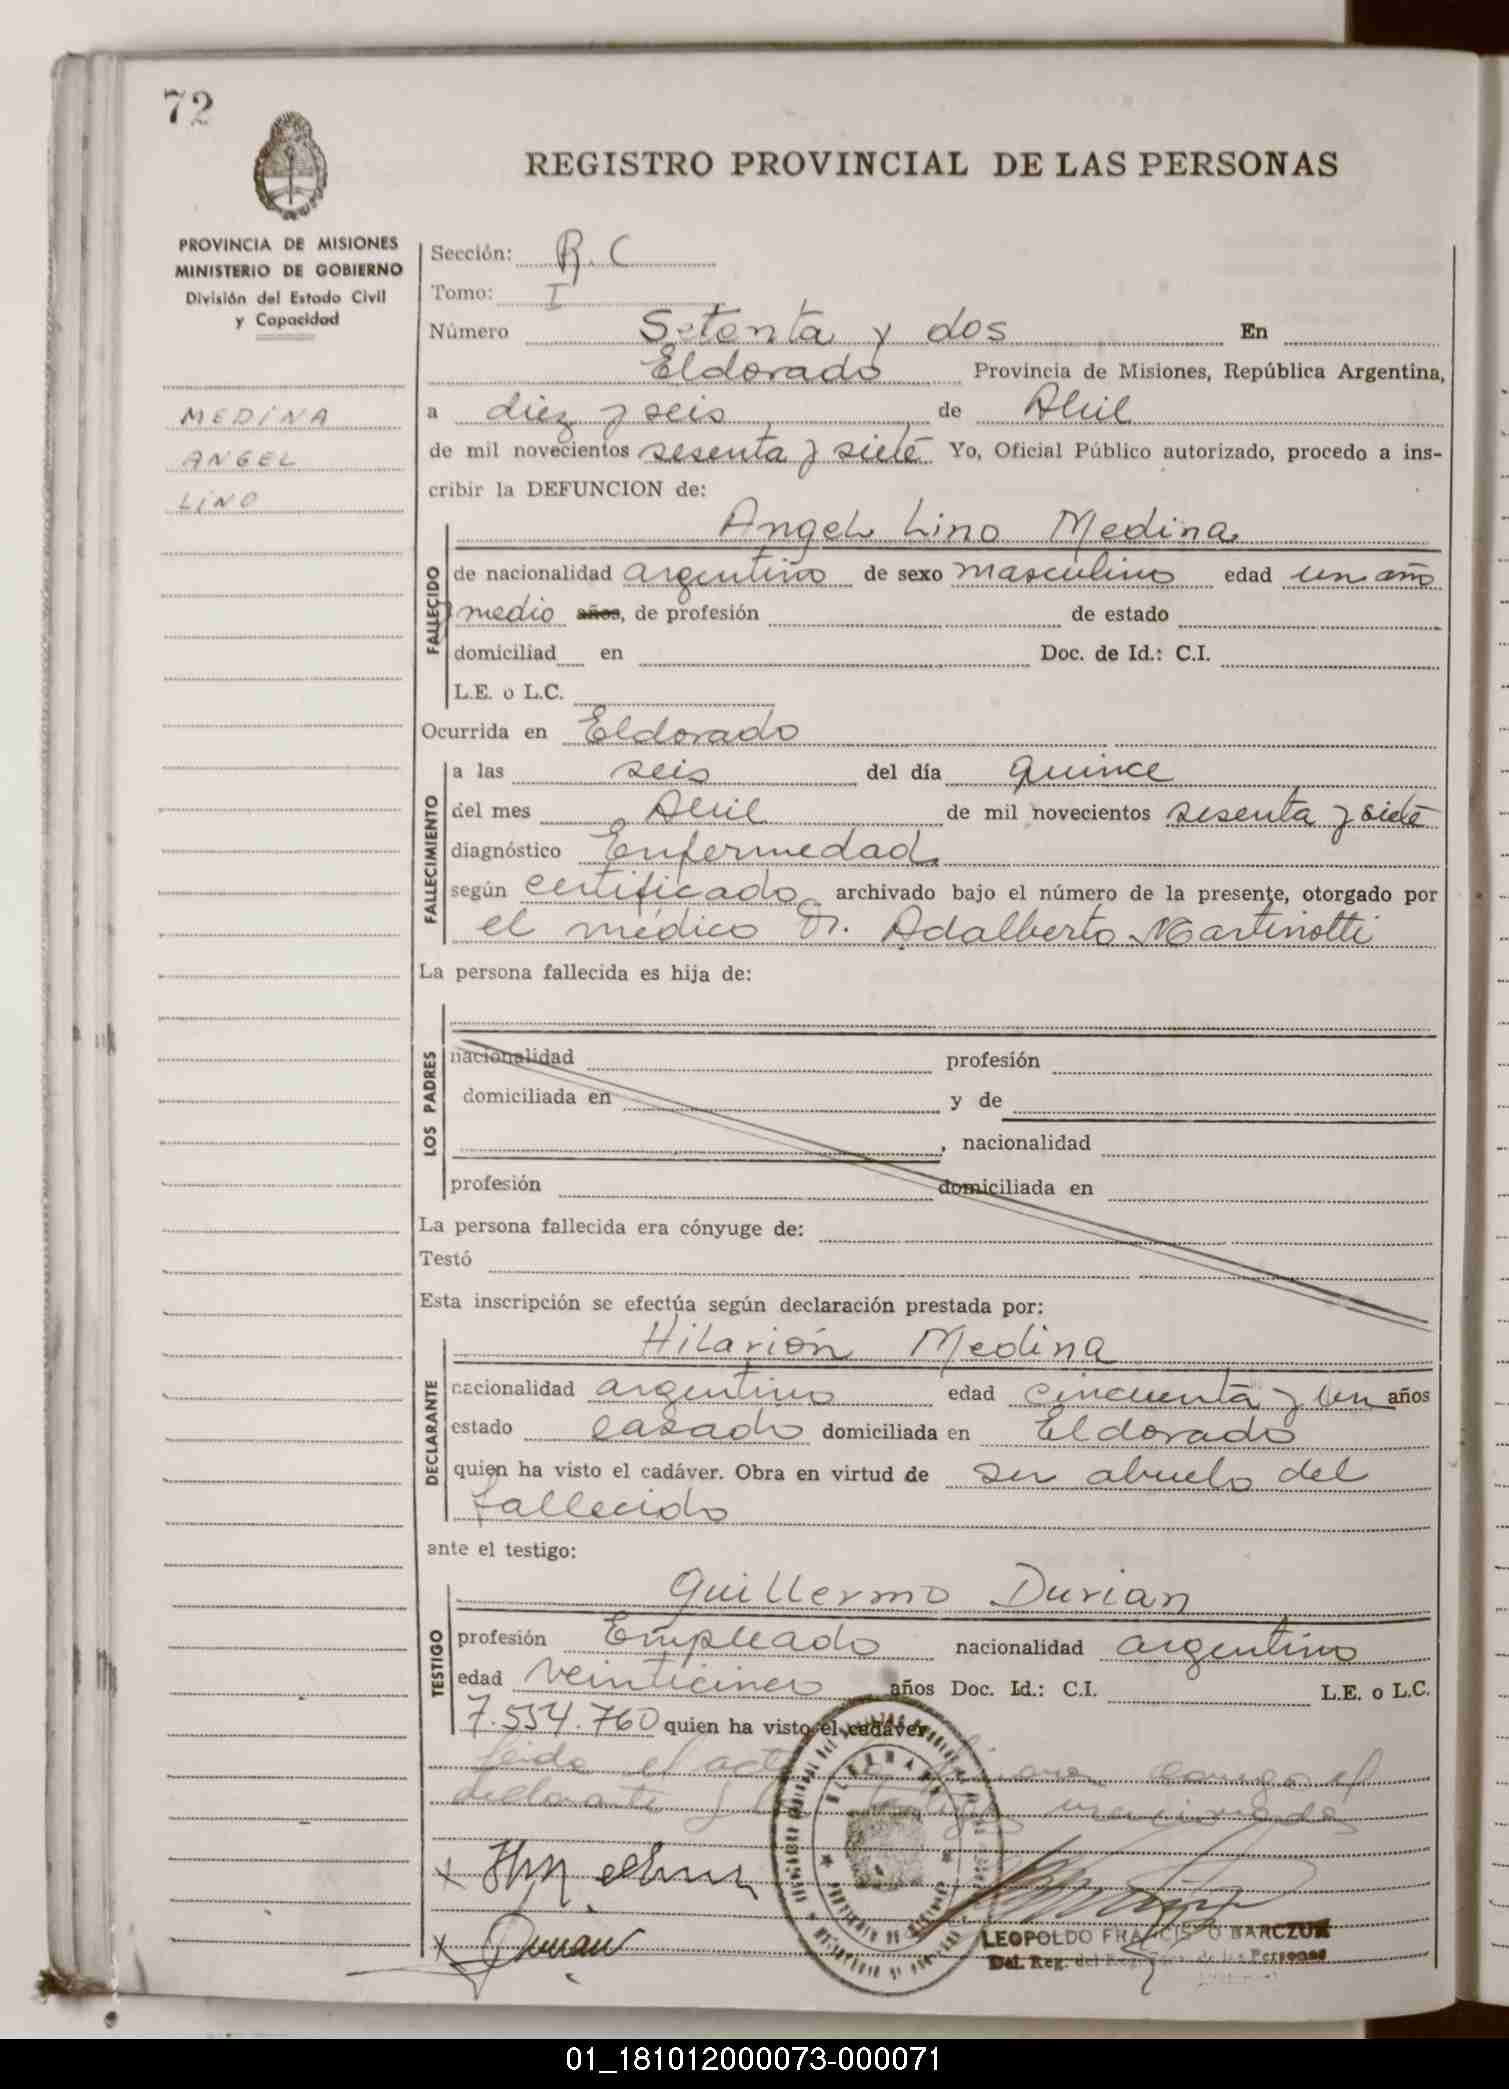 72
REGISTRO PROVINCIAL DE LAS PERSONAS
PROVINCIA DE MISIONES
MINISTERIO DE GOBIERNO
División del Estado Civil
y Capacidad
MEDINA
ANGEL
LINO
Sección: R. C
Tomo: I
Número Setenta y dos En
Eldorado Provincia de Misiones, República Argentina,
a diez y seis de Abril
de mil novecientos sesenta y siete Yo, Oficial Público autorizado, procedo a ins-
cribir la DEFUNCION de:
Angel Lino Medina
FALLECIDO
de nacionalidad argentino de sexo masculino edad un año
y medio años, de profesión de estado
domiciliad en Doc. de Id.: C.I.
L.E. o L.C.
Ocurrida en Eldorado
FALLECIMIENTO
a las seis del día quince
del mes Abril de mil novecientos sesenta y siete
diagnóstico Enfermedad
según certificado archivado bajo el número de la presente, otorgado por
el médico Dr. Adalberto Martinotti
La persona fallecida es hija de:
LOS PADRES
nacionalidad profesión
domiciliada en y de
, nacionalidad
profesión domiciliada en
La persona fallecida era cónyuge de:
Testó
Esta inscripción se efectúa según declaración prestada por:
Hilarión Medina
DECLARANTE
nacionalidad argentino edad cincuenta y un años
estado casado domiciliada en Eldorado
quien ha visto el cadáver. Obra en virtud de ser abuelo del
fallecido
ante el testigo:
Guillermo Durian
TESTIGO
profesión Empleado nacionalidad argentino
edad veinticinco años Doc. Id.: C.I. L.E. o L.C.
7.554.760 quien ha visto el cadáver
Leida el acta firman conmigo el
declarante y testigo mencionados
ELDORADO
PROVINCIA DE MISIONES
LEOPOLDO FRANCISCO BARCZUK
Del. Reg. del Reg. Prov. de las Personas
01_181012000073-000071